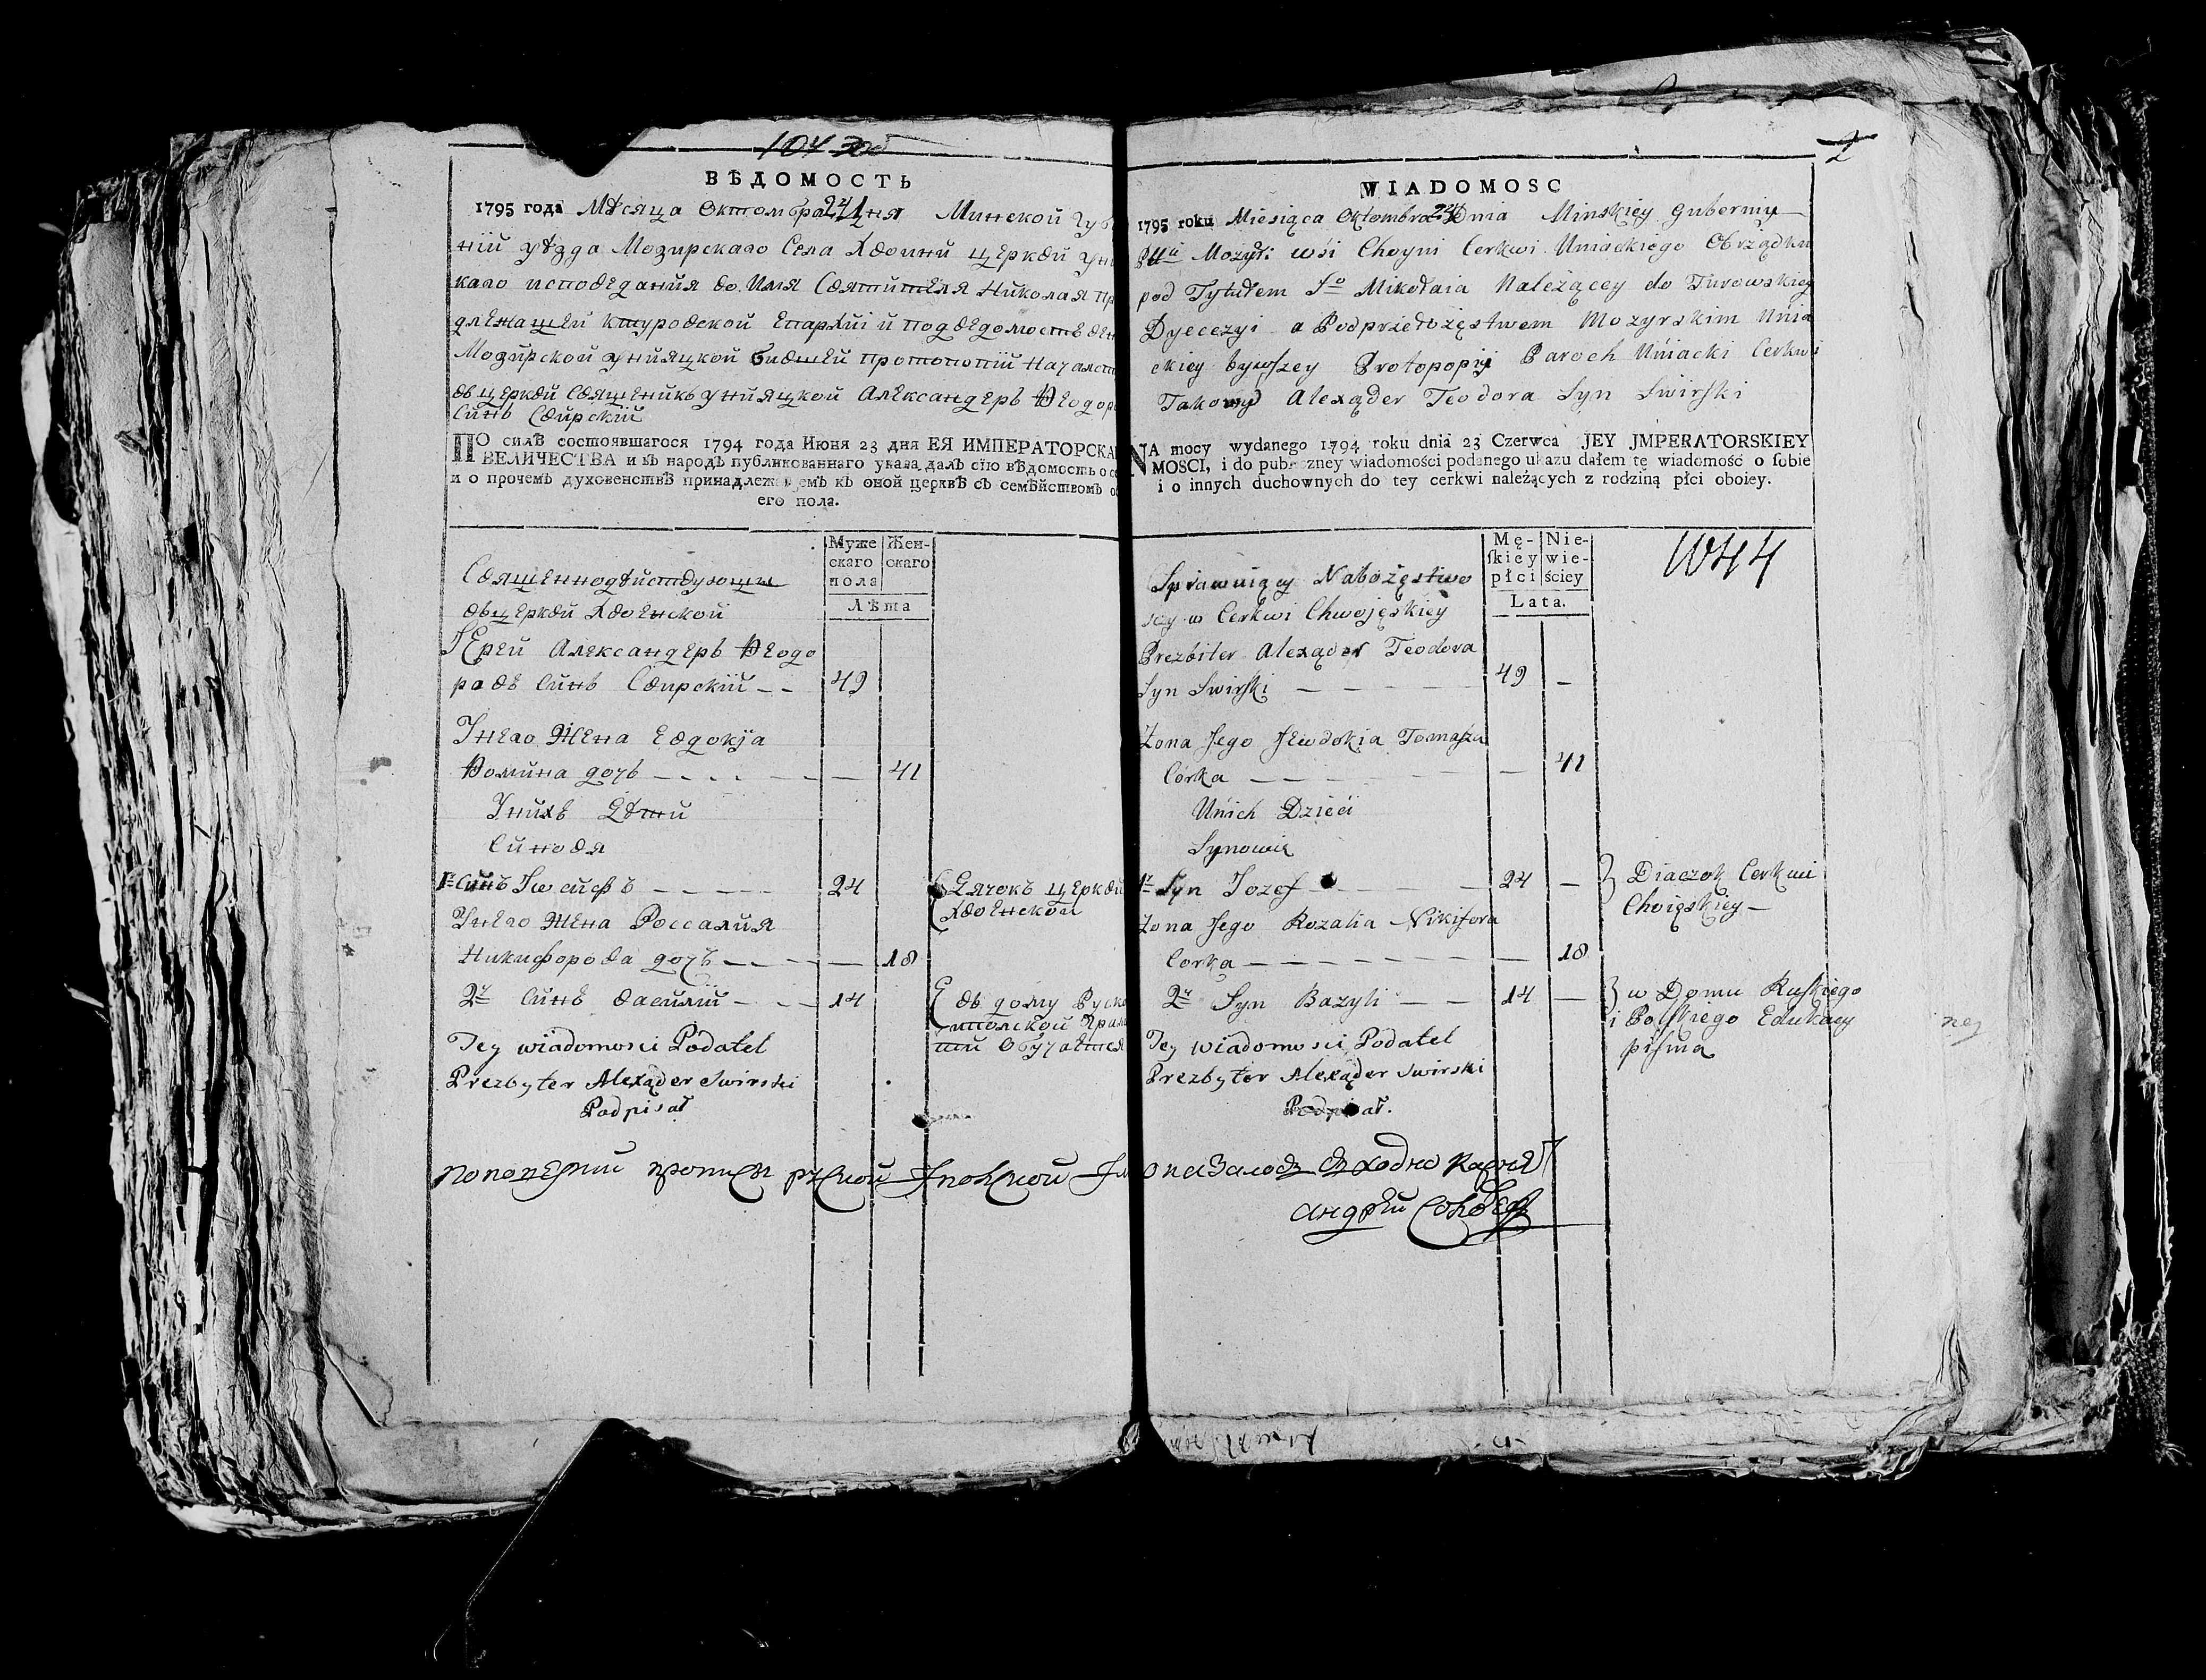 104
ВѢДОМОСТЬ
1795 года Мѣсяца Октомбра 24 дня Минской Губ
ніи уѣзда Мозирскаго Села Хвоини церкви уни
каго исповедания во имя Святителя Николая пр
длежащей к туровской Епархіи и под ведомством
Мозирской унияцкой бившей протопопіи
въ церкви Священикъ унияцкой Александеръ Феодор
Синъ Свирскій
ПО силѣ состоявшагося 1794 года Июня 23 дня ЕЯ ИМПЕРАТОРСКА
ВЕЛИЧЕСТВА и въ народъ публикованнаго указа далъ сію вѣдомость о с
и о прочемъ духовенствѣ принадлежащемъ къ оной церквѣ съ семѣйствомъ о
его пола.
Муже
скаго
пола
Жен-
скаго
Лѣта
Священнодѣйствующи
въ церкви Хвоенской
Іерей Александеръ Феодо
ровъ Синъ Свирскій 49
У него Жена Евдокія
Фомина дочъ 41
У нихъ Дѣти
Синовя
1й Синъ Іосифъ 24 Дячокъ церкви
Хвоенской
У него Жена Россалия
Никифорова дочъ 18
2й Синъ василій 14 въ дому Руско
полской Грам
ти обучается
Tey wiadomosci Podatel
Prezbyter Alexąder Swirski
Podpisał
WIADOMOSC
1795 roku Miesiąca Oktombra 24 Dnia Minskiey Guberniy
Mozyr: wśi Choyni Cerkwi Uniackiego Obrządku
pod Tytułem So Mikołaia Należącey do Turowskiey
Dyecezyi a Podprzełożęstwem Mozyrskim Unia
ckiey bywszey Protopopiy Paroch Uniacki Cerkwi
Takowey Alexąder Teodora Syn Swirski
NA mocy wydanego 1794 roku dnia 23 Czerwca JEY JMPERATORSKIEY
MOSCI, i do publiczney wiadomości podanego ukazu dałem tę wiadomość o sobie
i o innych duchownych do tey cerkwi należących z rodziną płci oboiey.
Mę-
skiey
płci
Nie-
wie-
ściey
Lata.
Sprawuiący Nabożęstwo
w Cerkwi Chwojęskiey
Prezbiter Alexąder Teodora
Syn Swirski 49
Żona Jego Jewdokia Tomasza
Córka 41
Unich Dzieci
Synowie
1y Syn Jozef 24 Diaczok Cerkwi
Choięskiey
Żona Jego Rozalia Nikifora
Corka 18
2y Syn Bazyli 14 w Domu Ruskiego
i Polskiego Edukacy
pisma
Tey wiadomosci Podatel
Prezbyter Alexąder Swirski
Podpisał.